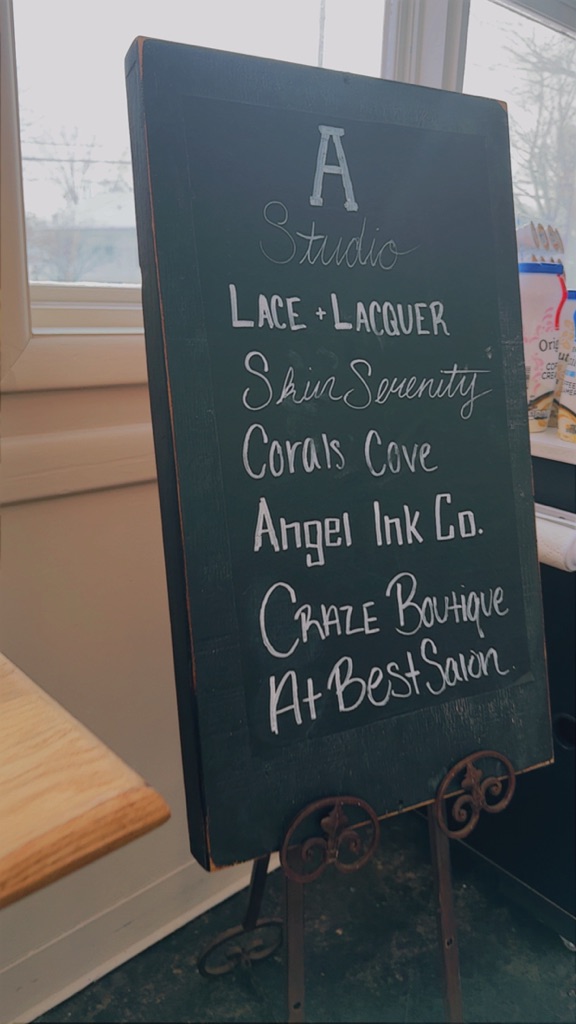 A
Studio
LACE + LACQUER
Skin Serenity
Corals Cove
Angel Ink Co.
CRAZE BOUTIQUE
At Best Salon
Orig